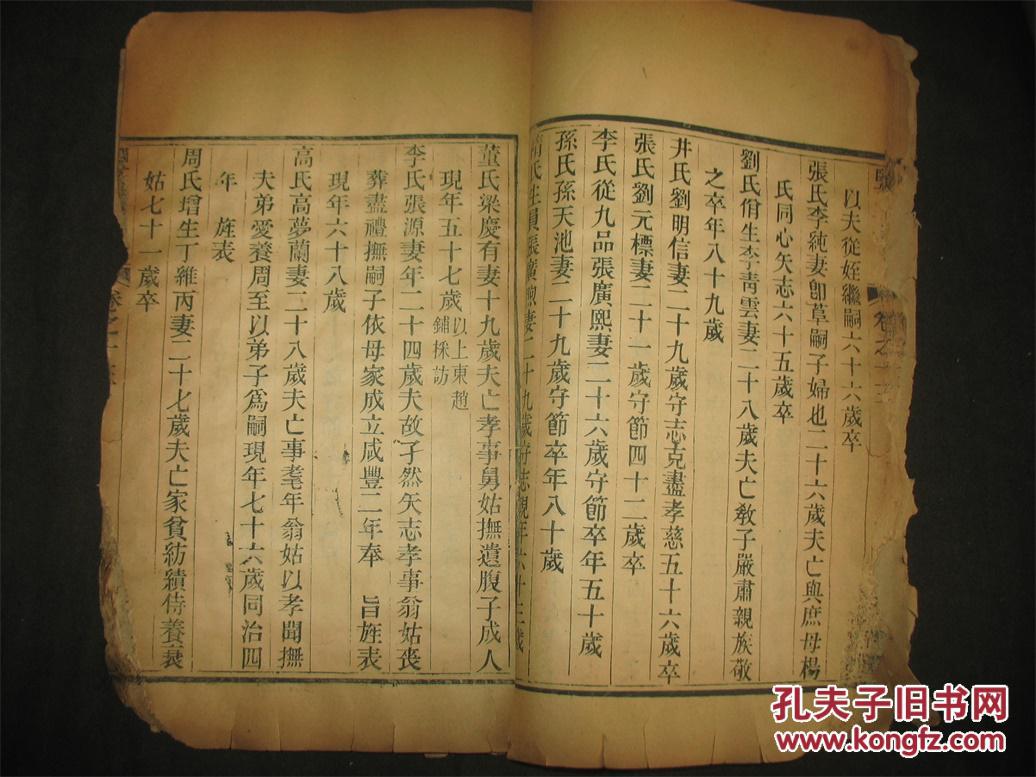 以夫從姪繼嗣六十六歲卒
張氏李純妻卽草嗣子婦也二十六歲夫亡與庶母楊
氏同心矢志六十五歲卒
劉氏佾生李靑雲妻二十八歲夫亡敎子嚴肅親族敬
之卒年八十九歲
井氏劉明信妻二十九歲守志克盡孝慈五十六歲卒
張氏劉元標妻二十一歲守節四十二歲卒
李氏從九品張廣熙妻二十六歲守節卒年五十歲
孫氏孫天池妻二十九歲守節卒年八十歲
氏生員張廣煦妻二十九歲守志現年六十三歲
董氏梁慶有妻十九歲夫亡孝事舅姑撫遺腹子成人
現年五十七歲以上東趙鋪採訪
李氏張源妻年二十四歲夫故孑然矢志孝事翁姑喪
葬盡禮撫嗣子依母家成立咸豐二年奉 旨旌表
現年六十八歲
高氏高夢蘭妻二十八歲夫亡事耄年翁姑以孝聞撫
夫弟愛養周至以弟子爲嗣現年七十六歲同治四
年 旌表
周氏增生丁維丙妻二十七歲夫亡家貧紡績侍養衰
姑七十一歲卒
孔夫子旧书网
www.kongfz.com